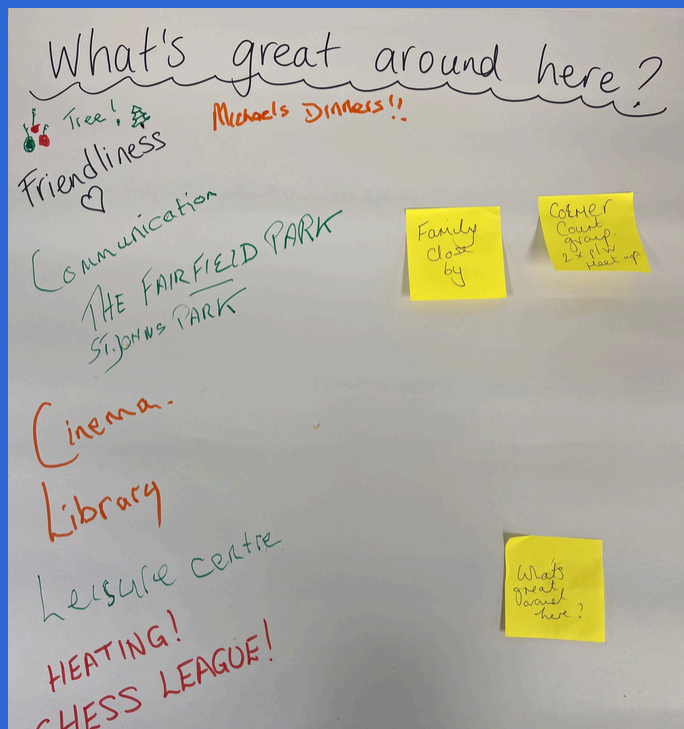 What's great around here?
Tree!
Michaels Dinners!!
Friendliness
Communication
THE FAIRFIELD PARK
ST. JOHNS PARK
Family
close
by
Corner
Court
group.
2 x p/w
Meet up
Cinema.
Library
Leisure centre
Whats
great
around
here?
HEATING!
CHESS LEAGUE!